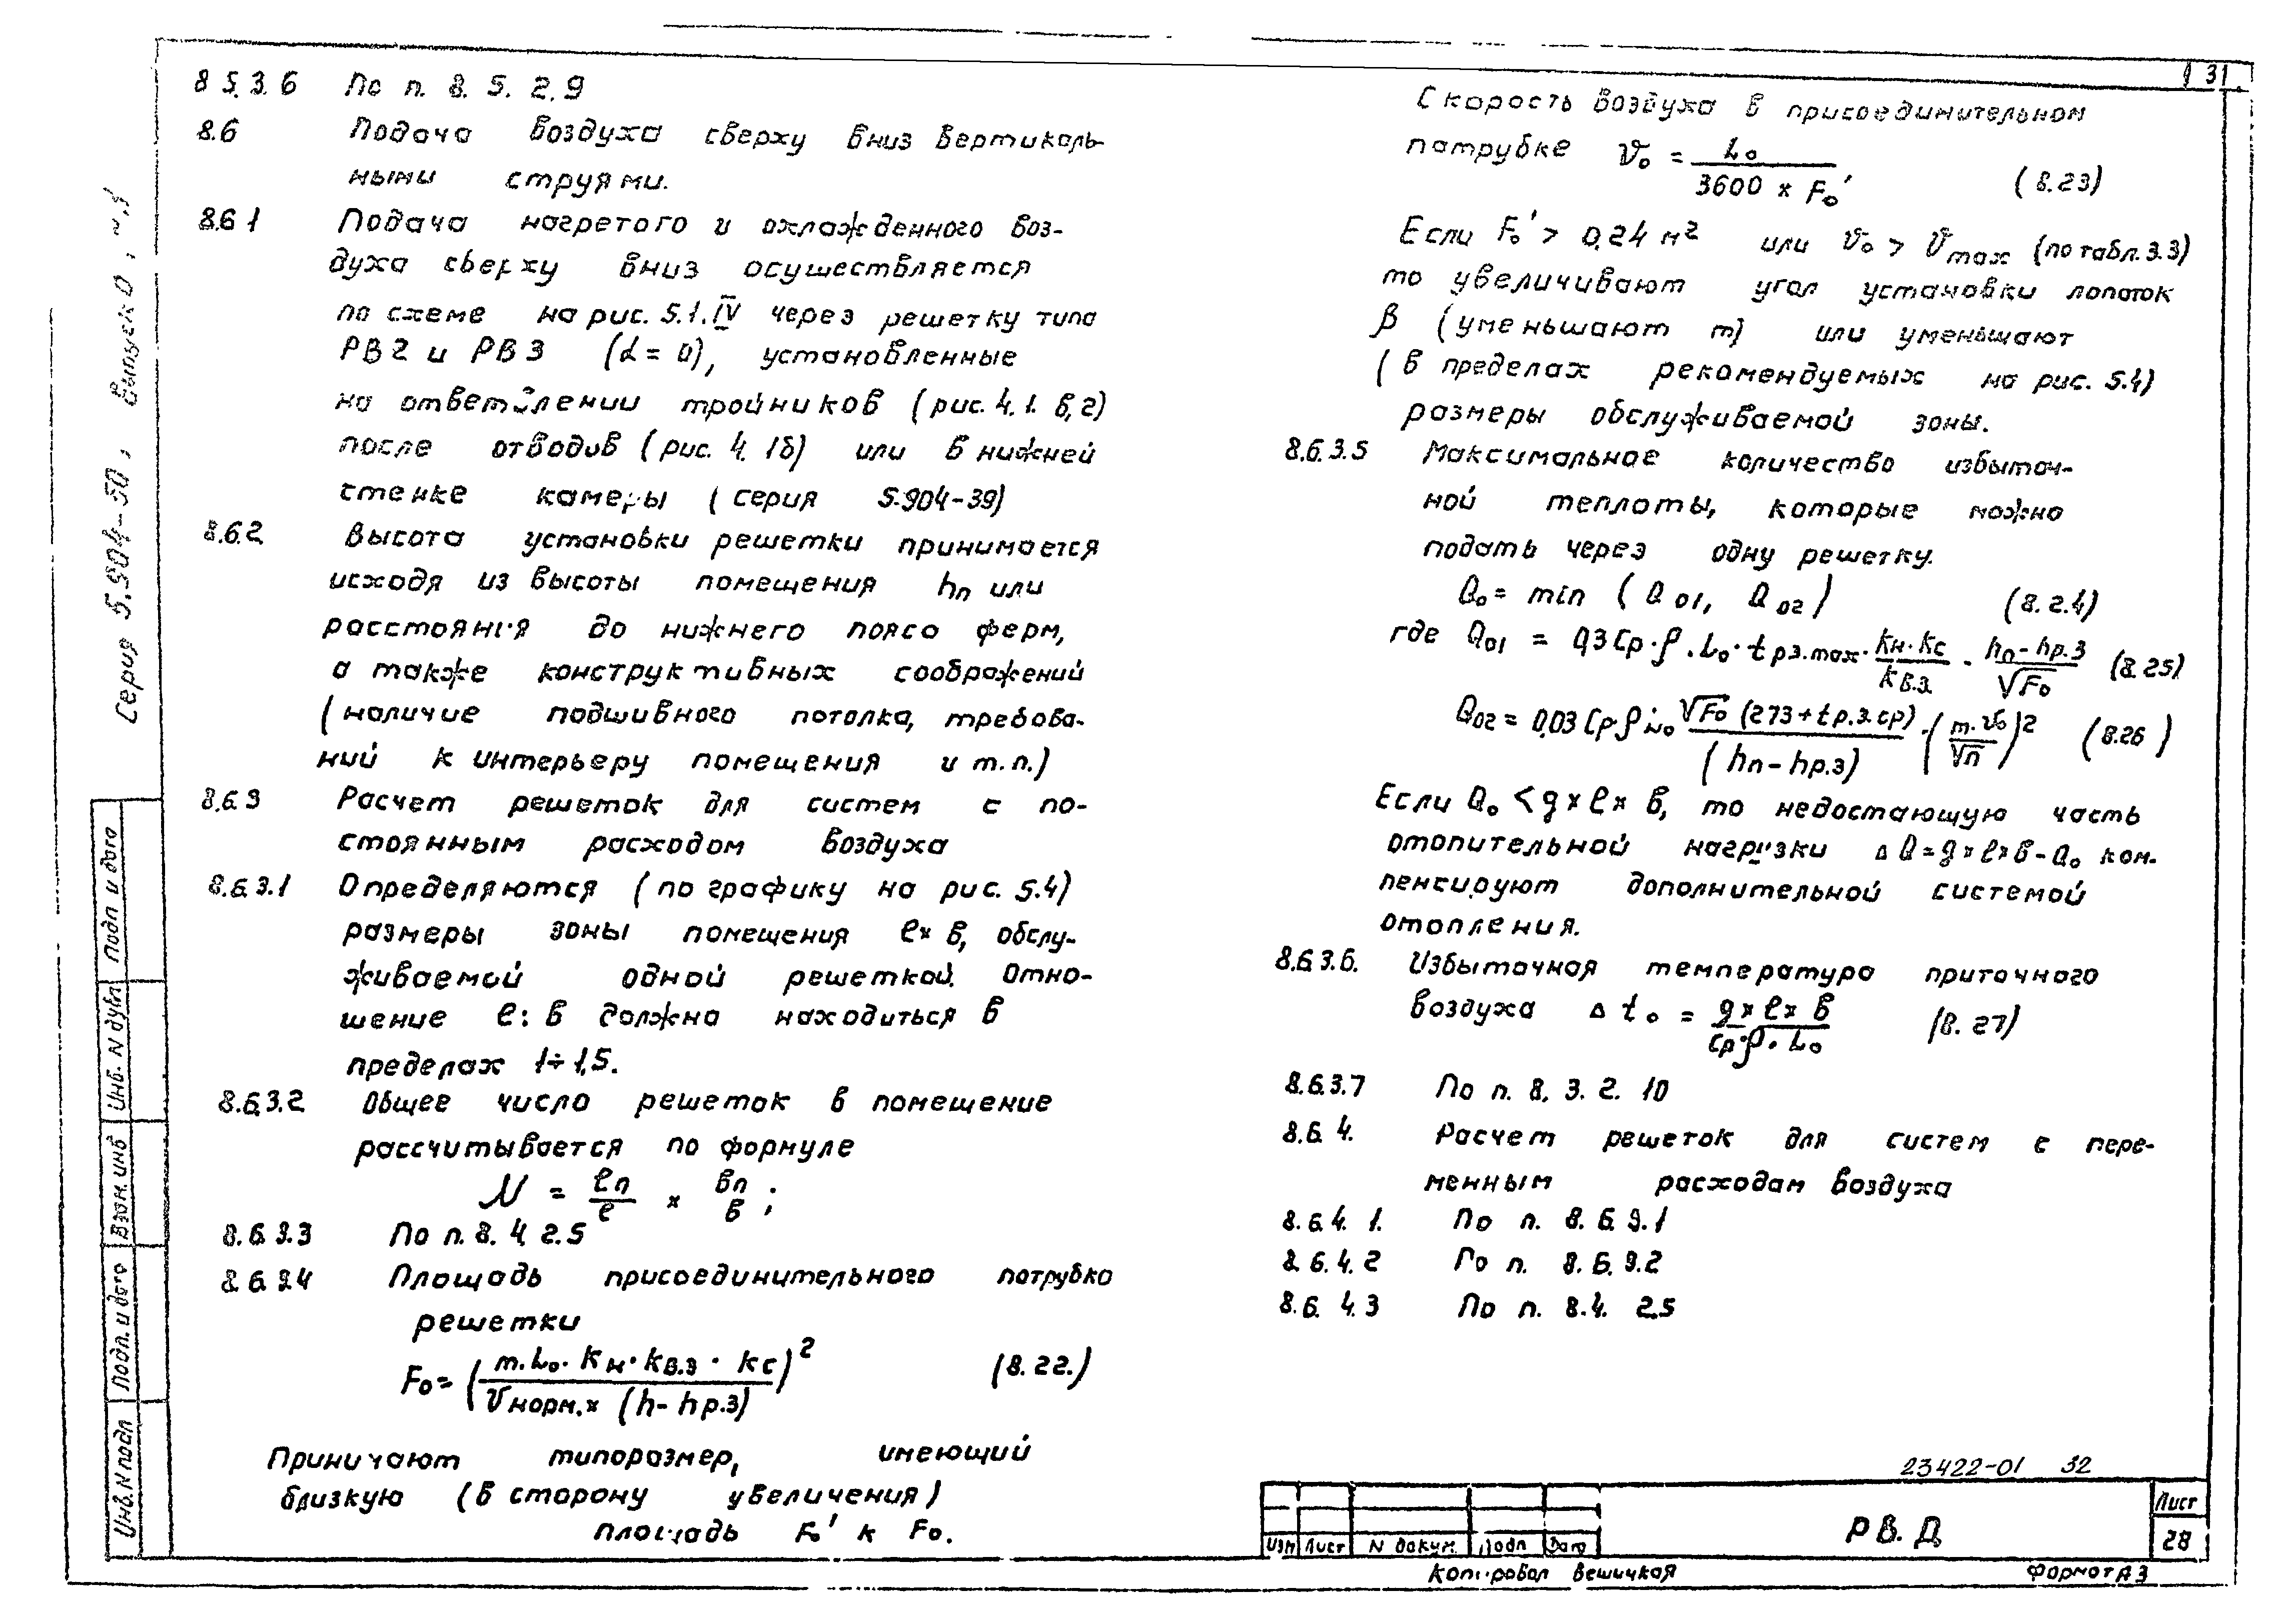 31
8 5. 3. 6 По п. 8. 5. 2. 9
8.6 Подача воздуха сверху вниз вертикаль-
ными струями.
8.6 1 Подача нагретого и охлажденного воз-
духа сверху вниз осуществляется
по схеме на рис. 5.1. IV через решетку типа
РВ2 и РВ3 (α = 0), установленные
на ответвлении тройников (рис. 4. 1. в, г)
после отводов (рис. 4. 1б) или в нижней
стенке камеры (серия 5.904-39)
8.6.2 Высота установки решетки принимается
исходя из высоты помещения hп или
расстояния до нижнего пояса ферм,
а также конструктивных соображений
(наличие подшивного потолка, требова-
ний к интерьеру помещения и т. п.)
8.6.3 Расчет решеток для систем с по-
стоянным расходом воздуха
8.6.3.1 Определяются (по графику на рис. 5.4)
размеры зоны помещения ℓ×в, обслу-
живаемой одной решеткой. Отно-
шение ℓ : в должно находиться в
пределах 1÷1,5.
8.6.3.2 Общее число решеток в помещение
рассчитывается по формуле
N = ℓп/ℓ × вп/в ;
8.6.3.3 По п. 8. 4. 2. 5
8. 6. 3.4 Площадь присоединительного потрубка
решетки
F₀ = (m. L₀. Kн. Kв.з . Kс / Vнорм. × (h - hр.з))² (8. 22.)
Принимают типоразмер, имеющий
близкую (в сторону увеличения)
площадь F₀' к F₀.
Скорость воздуха в присоединительном
патрубке V₀ = L₀ / 3600 × F₀' (8.23)
Если F₀' > 0,24 м² или V₀ > Vmax (по табл. 3.3)
то увеличивают угол установки лопаток
β (уменьшают m) или уменьшают
(в пределах рекомендуемых на рис. 5.4)
размеры обслуживаемой зоны.
8.6.3.5 Максимальное количество избыточ-
ной теплоты, которые можно
подать через одну решетку.
Q₀ = min (Q 01, Q 02) (8. 2.4)
где Q01 = 0,3 Cр · ρ . L₀ · t рз.max · Kн · Kс / Kв.з. · hп - hр.з / √F₀ (8.25)
Q02 = 0,03 Cр · ρ L₀ √F₀ (273 + tр.з.ср) / (hп - hр.з) · (m. V₀ / √п)² (8.26)
Если Q₀ < g × ℓ × в, то недостающую часть
отопительной нагрузки Δ Q = g × ℓ × в - Q₀ ком-
пенсируют дополнительной системой
отопления.
8.6.3.6. Избыточная температура приточного
воздуха Δ t₀ = g × ℓ × в / Cр · ρ . L₀ (8. 27)
8.6.3.7 По п. 8. 3. 2. 10
8.6. 4. Расчет решеток для систем с пере-
менным расходам воздуха
8. 6. 4. 1. По п. 8. 6. 3. 1
8. 6. 4. 2 По п. 8. 6. 3. 2
8. 6. 4. 3 По п. 8. 4. 2.5
23422-01 32
РВ. Д
Лист
28
Изм Лист N докум. Подп Дата
Копировал Вешицкая
Формат А3
Серия 5.904-50, Выпуск 0,
Подп и дата
Инв. N дубл
Взам. инв
Подп. и дата
Инв. N подл